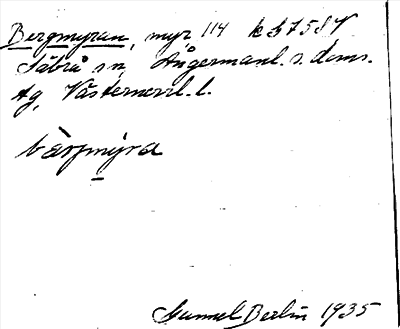 Bergmyran, myr 114 k 37 58 V
Säbrå sn, Ångermanl. s. doms.
tg, Västernorrl. l.
bærjmýra
Gunnel Berlin 1935